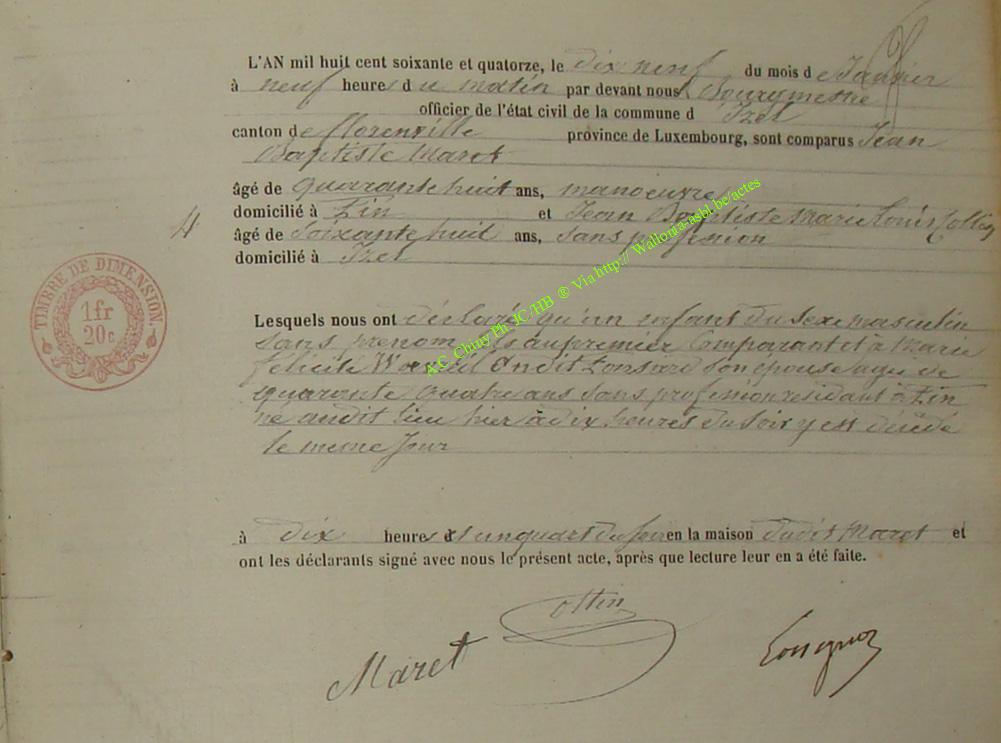 L'AN mil huit cent soixante et quatorze, le dix neuf du mois de Janvier
à neuf heures du matin par devant nous Bourgmestre
officier de l'état civil de la commune d'Izel
canton de florenville province de Luxembourg, sont comparus Jean
Baptiste Maret
âgé de quarante huit ans, manoeuvre
domicilié à et Jean Baptiste Marie Louis
4
âgé de Soixante huit ans, Sans profession
domicilié à Izel
TIMBRE DE DIMENSION.
1 fr
20 c
Lesquels nous ont déclaré qu'un enfant du Sexe masculin
Sans prenom, fils au premier Comparant et à Marie
félicité son épouse agée de
quarante quatre ans sans profession residant à
né audit lieu hier à dix heures du Soir y est décédé
le meme jour
à dix heures et un quart du soir en la maison dudit Maret et
ont les déclarants signé avec nous le présent acte, après que lecture leur en a été faite.
Maret
A.C. Chiny Ph. JC/HB ® Via http:// Wallonia-asbl.be/actes